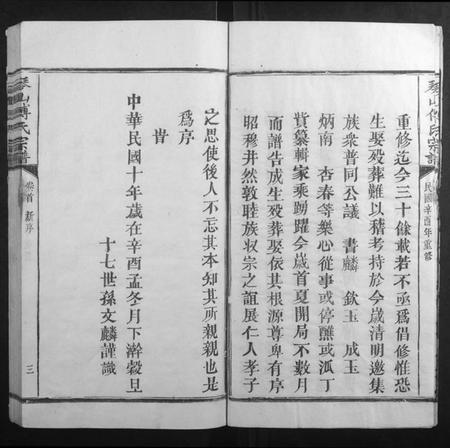 琴山傅氏宗譜
民國辛酉年重修
重修迄今三十餘載若不亟爲倡修惟恐
生娶歿葬難以稽考特於今歲清明邀集
族衆普同公議　書麟　欽玉　成玉
炳南　杏春等樂心從事或停醮或派丁
貲纂輯家乘踴躍今歲首夏開局不數月
而譜告成生歿葬娶依其根源尊卑有序
昭穆井然敦睦族收宗之誼展仁人孝子
之思使後人不忘其本知其所親親也是
爲序
旹
中華民國十年歲在辛酉孟冬月下澣穀旦
十七世孫文麟謹識
琴山傅氏宗譜
卷首　新序
三